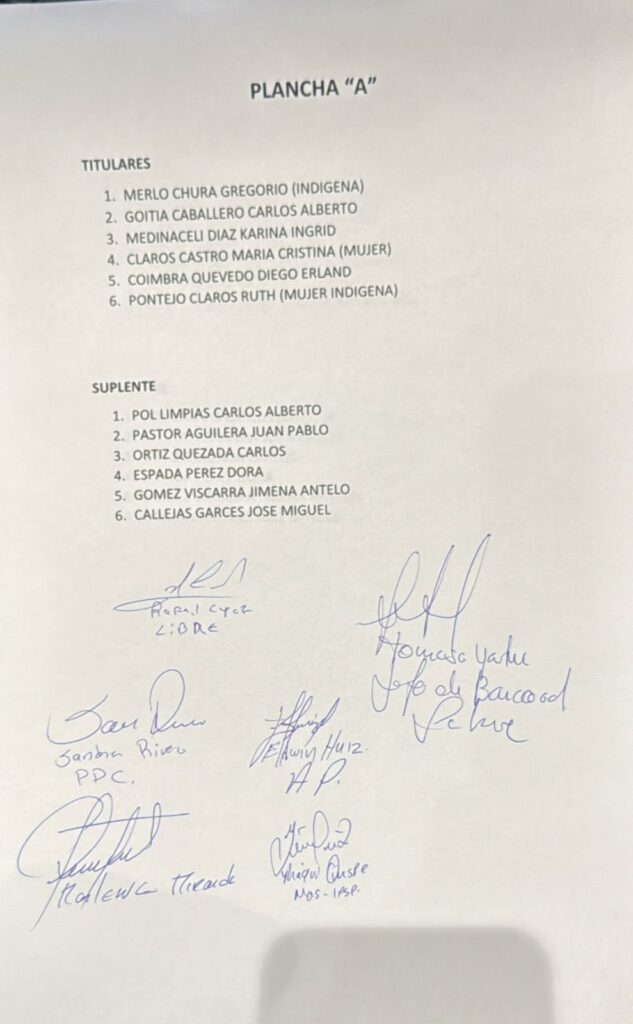 PLANCHA “A”
TITULARES
1. MERLO CHURA GREGORIO (INDIGENA)
2. GOITIA CABALLERO CARLOS ALBERTO
3. MEDINACELI DIAZ KARINA INGRID
4. CLAROS CASTRO MARIA CRISTINA (MUJER)
5. COIMBRA QUEVEDO DIEGO ERLAND
6. PONTEJO CLAROS RUTH (MUJER INDIGENA)
SUPLENTE
1. POL LIMPIAS CARLOS ALBERTO
2. PASTOR AGUILERA JUAN PABLO
3. ORTIZ QUEZADA CARLOS
4. ESPADA PEREZ DORA
5. GOMEZ VISCARRA JIMENA ANTELO
6. CALLEJAS GARCES JOSE MIGUEL
LIBRE
Jefe de Bancada
Sandra Rivero
PDC.
A P.
Quispe
MAS-IPSP.